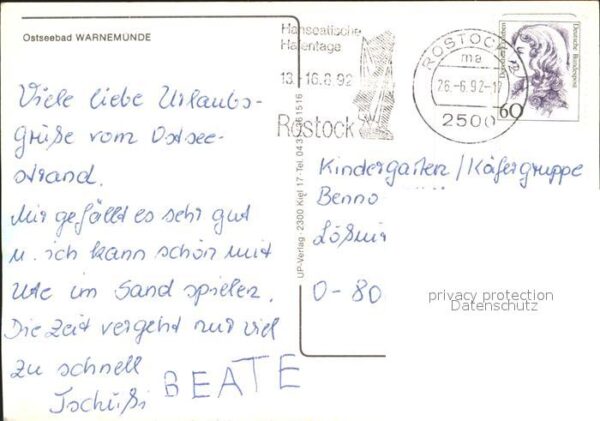 Ostseebad WARNEMÜNDE
Viele liebe Urlaubs-
grüße vom Ostsee-
strand.
Mir gefällt es sehr gut
u. ich kann schön mit
Ute im Sand spielen.
Die Zeit vergeht nur viel
zu schnell
Tschüßi BEATE
UP-Verlag · 2300 Kiel 17 · Tel. 043
1516
Hanseatische
Hafentage
13.-16.8.92
Rostock
ROSTOCK
ma
26.-6.92-17
2500
Deutsche Bundespost
60
Kindergarten/Käfergruppe
Benno
O-80
privacy protection
Datenschutz